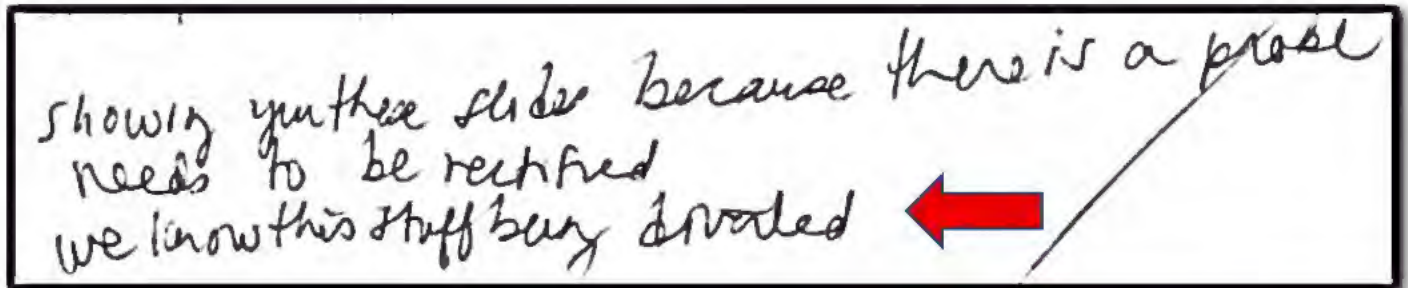 showing you these slides because there is a probl
needs to be rectified
we know this stuff being diverted